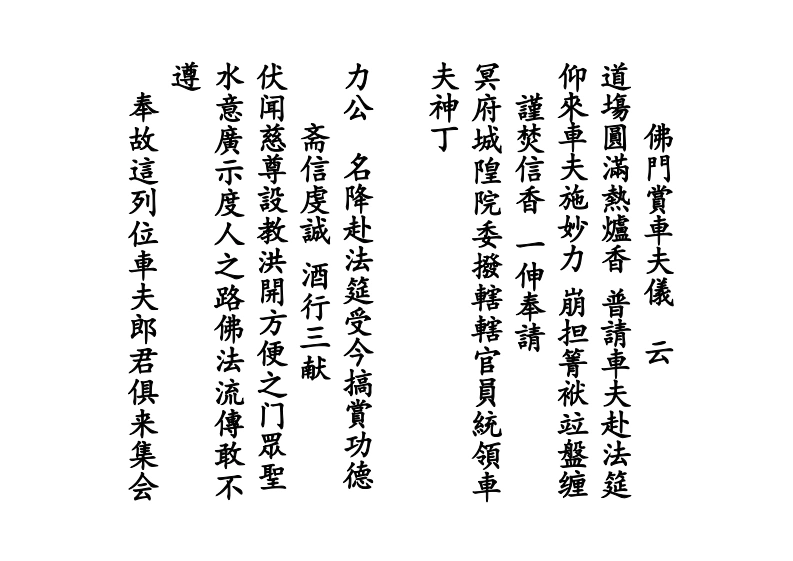 佛門賞車夫儀　云
道塲圓滿熱爐香　普請車夫赴法筵
仰來車夫施妙力　崩担箐袱竝盤缠
謹焚信香　一伸奉請
冥府城隍院委撥轄轄官員統領車
夫神丁
力公　名降赴法筵受今搞賞功德
斋信虔誠　酒行三献
伏闻慈尊設教洪開方便之门眾聖
水意廣示度人之路佛法流傳敢不
遵
奉故這列位車夫郎君俱来集会